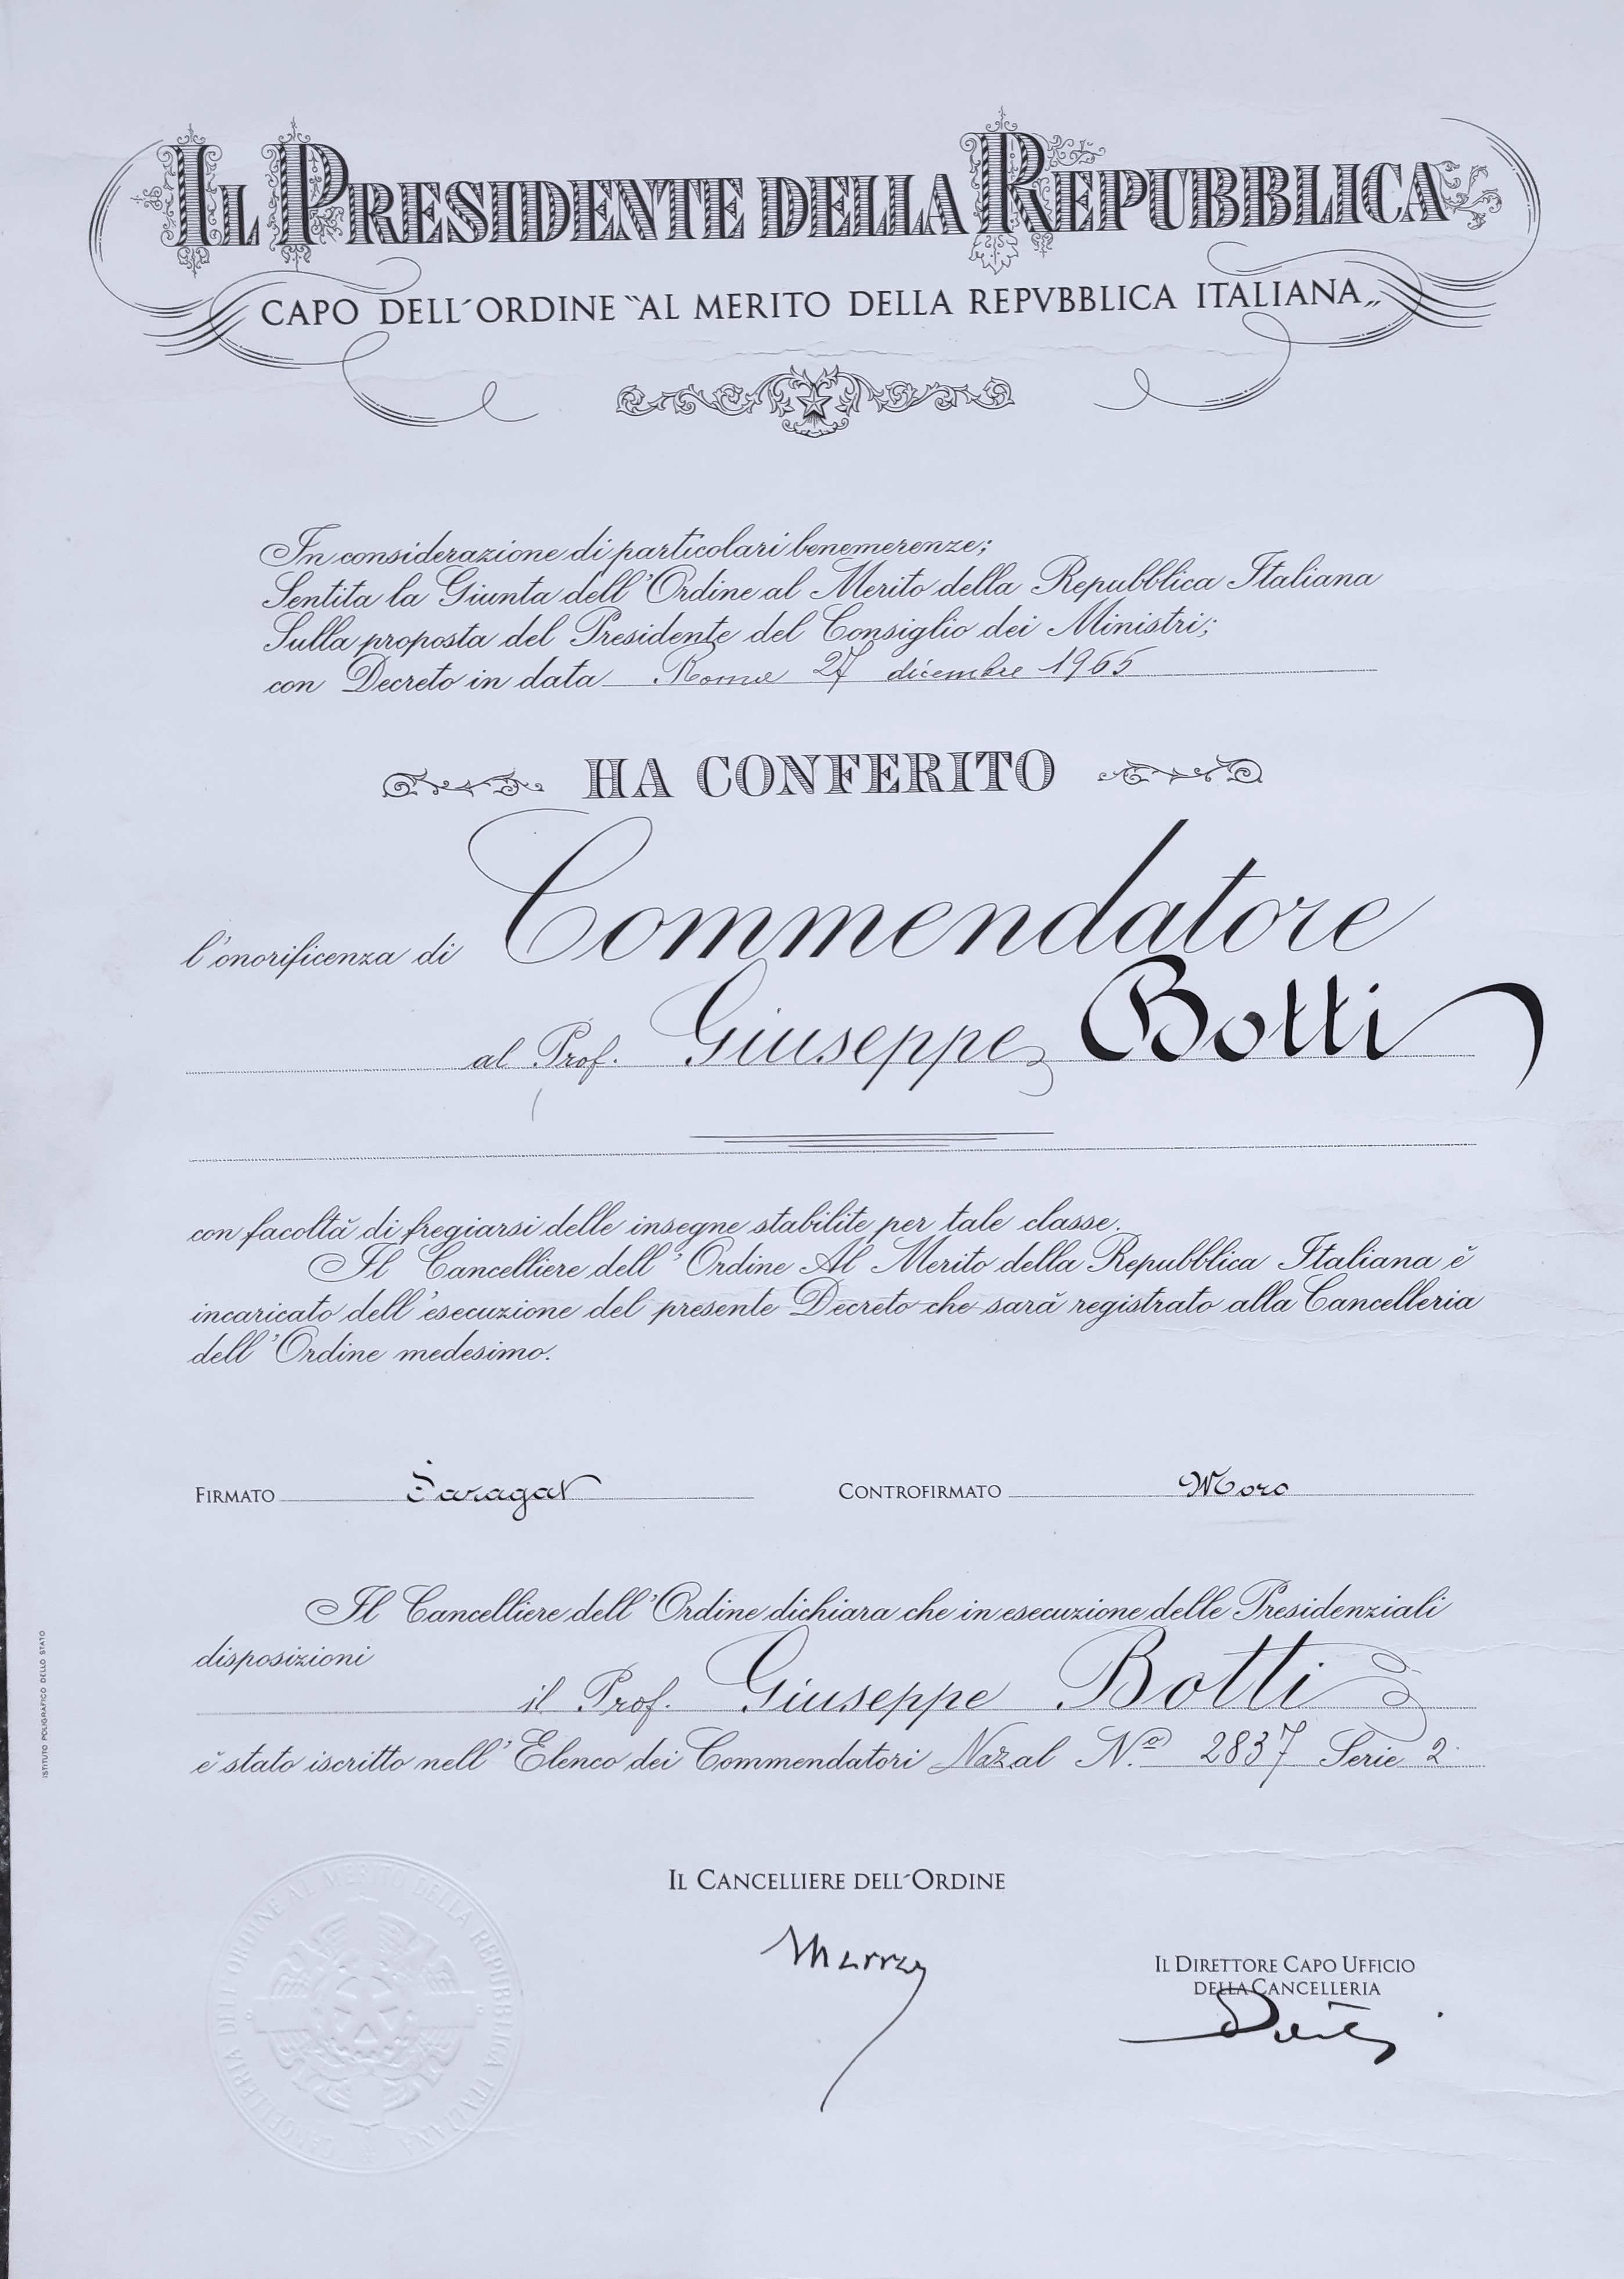 IL PRESIDENTE DELLA REPUBBLICA
CAPO DELL'ORDINE "AL MERITO DELLA REPVBBLICA ITALIANA„
In considerazione di particolari benemerenze;
Sentita la Giunta dell'Ordine al Merito della Repubblica Italiana
Sulla proposta del Presidente del Consiglio dei Ministri;
con Decreto in data Roma 27 dicembre 1965
HA CONFERITO
l'onorificenza di Commendatore
al Prof. Giuseppe Botti
con facoltà di fregiarsi delle insegne stabilite per tale classe.
Il Cancelliere dell'Ordine Al Merito della Repubblica Italiana è
incaricato dell'esecuzione del presente Decreto che sarà registrato alla Cancelleria
dell'Ordine medesimo.
FIRMATO Saragat CONTROFIRMATO Moro
Il Cancelliere dell'Ordine dichiara che in esecuzione delle Presidenziali
disposizioni
il Prof. Giuseppe Botti
è stato iscritto nell'Elenco dei Commendatori Naz.al N.º 2837 Serie 2ª
IL CANCELLIERE DELL'ORDINE
IL DIRETTORE CAPO UFFICIO
DELLA CANCELLERIA
CANCELLERIA DELL'ORDINE AL MERITO DELLA REPUBBLICA ITALIANA
ISTITUTO POLIGRAFICO DELLO STATO